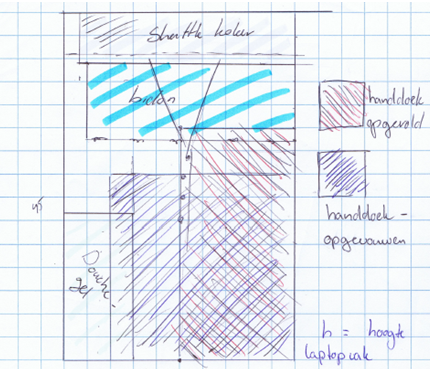 Shuttle koker
bidon
handdoek
opgerold
handdoek -
opgevouwen
Douche-
gel
h = hoogte
laptopvak